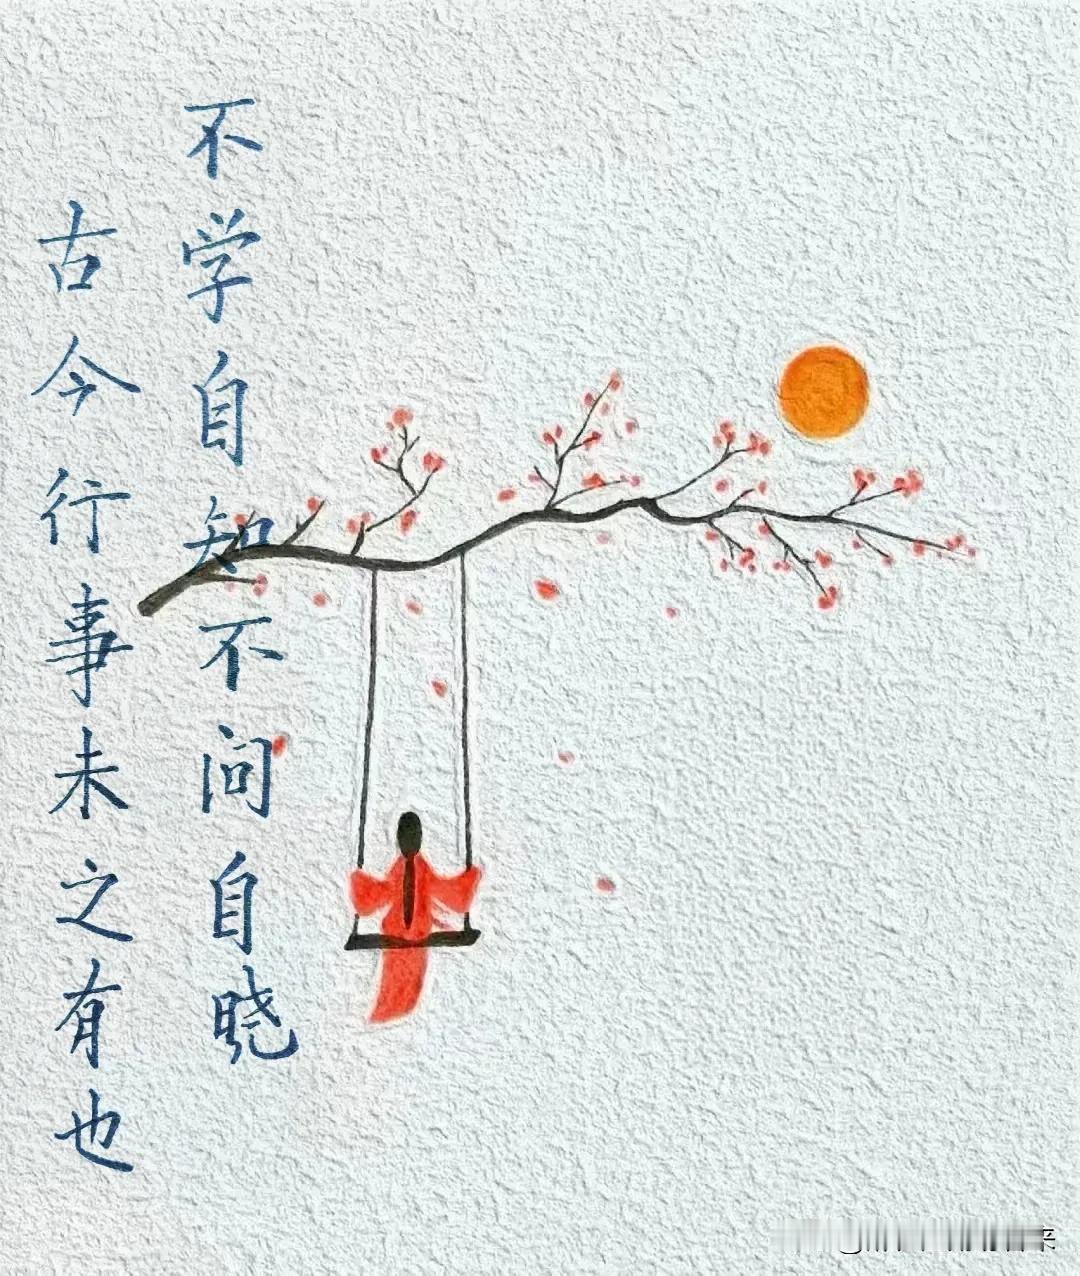 不学自知不问自晓
古今行事未之有也